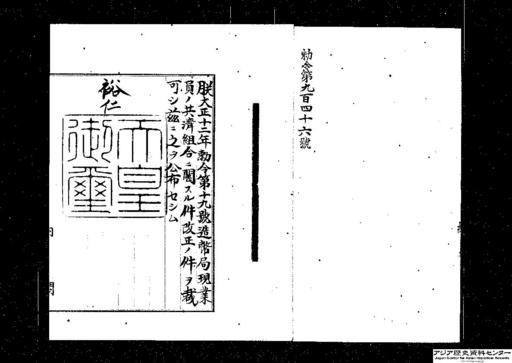 勅令第九百四十六號
朕大正十二年勅令第十九號造幣局現業
員ノ共濟組合ニ關スル件改正ノ件ヲ裁
可シ茲ニ之ヲ公布セシム
裕仁
天皇
御璽
内
閣
アジア歴史資料センター
Japan Center for Asian Historical Records